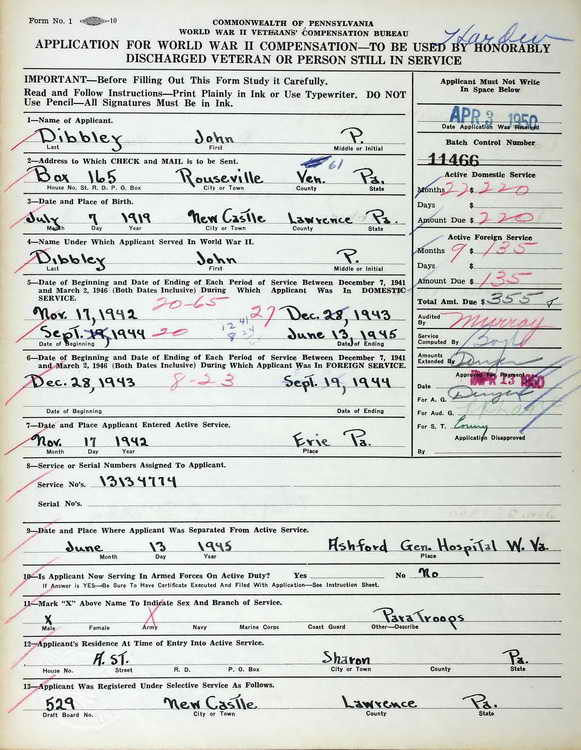 Form No. 1 10
COMMONWEALTH OF PENNSYLVANIA
WORLD WAR II VETERANS' COMPENSATION BUREAU
APPLICATION FOR WORLD WAR II COMPENSATION—TO BE USED BY HONORABLY
DISCHARGED VETERAN OR PERSON STILL IN SERVICE
IMPORTANT—Before Filling Out This Form Study it Carefully.
Read and Follow Instructions—Print Plainly in Ink or Use Typewriter. DO NOT
Use Pencil—All Signatures Must Be in Ink.
Applicant Must Not Write
In Space Below
APR 3 1950
Date Application Was Received
Batch Control Number
11466
1—Name of Applicant.
Dibbley John P.
Last First Middle or Initial
2—Address to Which CHECK and MAIL is to be Sent.
61
Box 165 Rouseville Ven. Pa.
House No. St. R. D. P. O. Box City or Town County State
Active Domestic Service
Months 22 $ 220
Days $
Amount Due $ 220
3—Date and Place of Birth.
July 7 1919 New Castle Lawrence Pa.
Month Day Year City or Town County State
Active Foreign Service
Months 9 $ 135
Days $
Amount Due $ 135
4—Name Under Which Applicant Served In World War II.
Dibbley John P.
Last First Middle or Initial
Total Amt. Due $ 355
5—Date of Beginning and Date of Ending of Each Period of Service Between December 7, 1941
and March 2, 1946 (Both Dates Inclusive) During Which Applicant Was In DOMESTIC
SERVICE.
20-65
Nov. 17, 1942 27 Dec. 28, 1943
Sept. 19, 1944 20 June 13, 1945
Date of Beginning Date of Ending
Audited By Murray
Service Computed By Boyle
Amounts Extended By
Approved For Payment
Date APR 13 1950
For A. G.
For Aud. G.
For S. T.
Application Disapproved
By
6—Date of Beginning and Date of Ending of Each Period of Service Between December 7, 1941
and March 2, 1946 (Both Dates Inclusive) During Which Applicant Was In FOREIGN SERVICE.
Dec. 28, 1943 8-23 Sept. 19, 1944
Date of Beginning Date of Ending
7—Date and Place Applicant Entered Active Service.
Nov. 17 1942 Erie Pa.
Month Day Year Place
8—Service or Serial Numbers Assigned To Applicant.
Service No's. 13134774
Serial No's.
9—Date and Place Where Applicant Was Separated From Active Service.
June 13 1945 Ashford Gen. Hospital W. Va.
Month Day Year Place
10—Is Applicant Now Serving In Armed Forces On Active Duty? Yes No No
If Answer is YES—Be Sure To Have Certificate Executed And Filed With Application—See Instruction Sheet.
11—Mark "X" Above Name To Indicate Sex And Branch of Service.
X X ParaTroops
Male Female Army Navy Marine Corps Coast Guard Other—Describe
12—Applicant's Residence At Time of Entry Into Active Service.
A. ST. Sharon Pa.
House No. Street R. D. P. O. Box City or Town County State
13—Applicant Was Registered Under Selective Service As Follows.
529 New Castle Lawrence Pa.
Draft Board No. City or Town County State